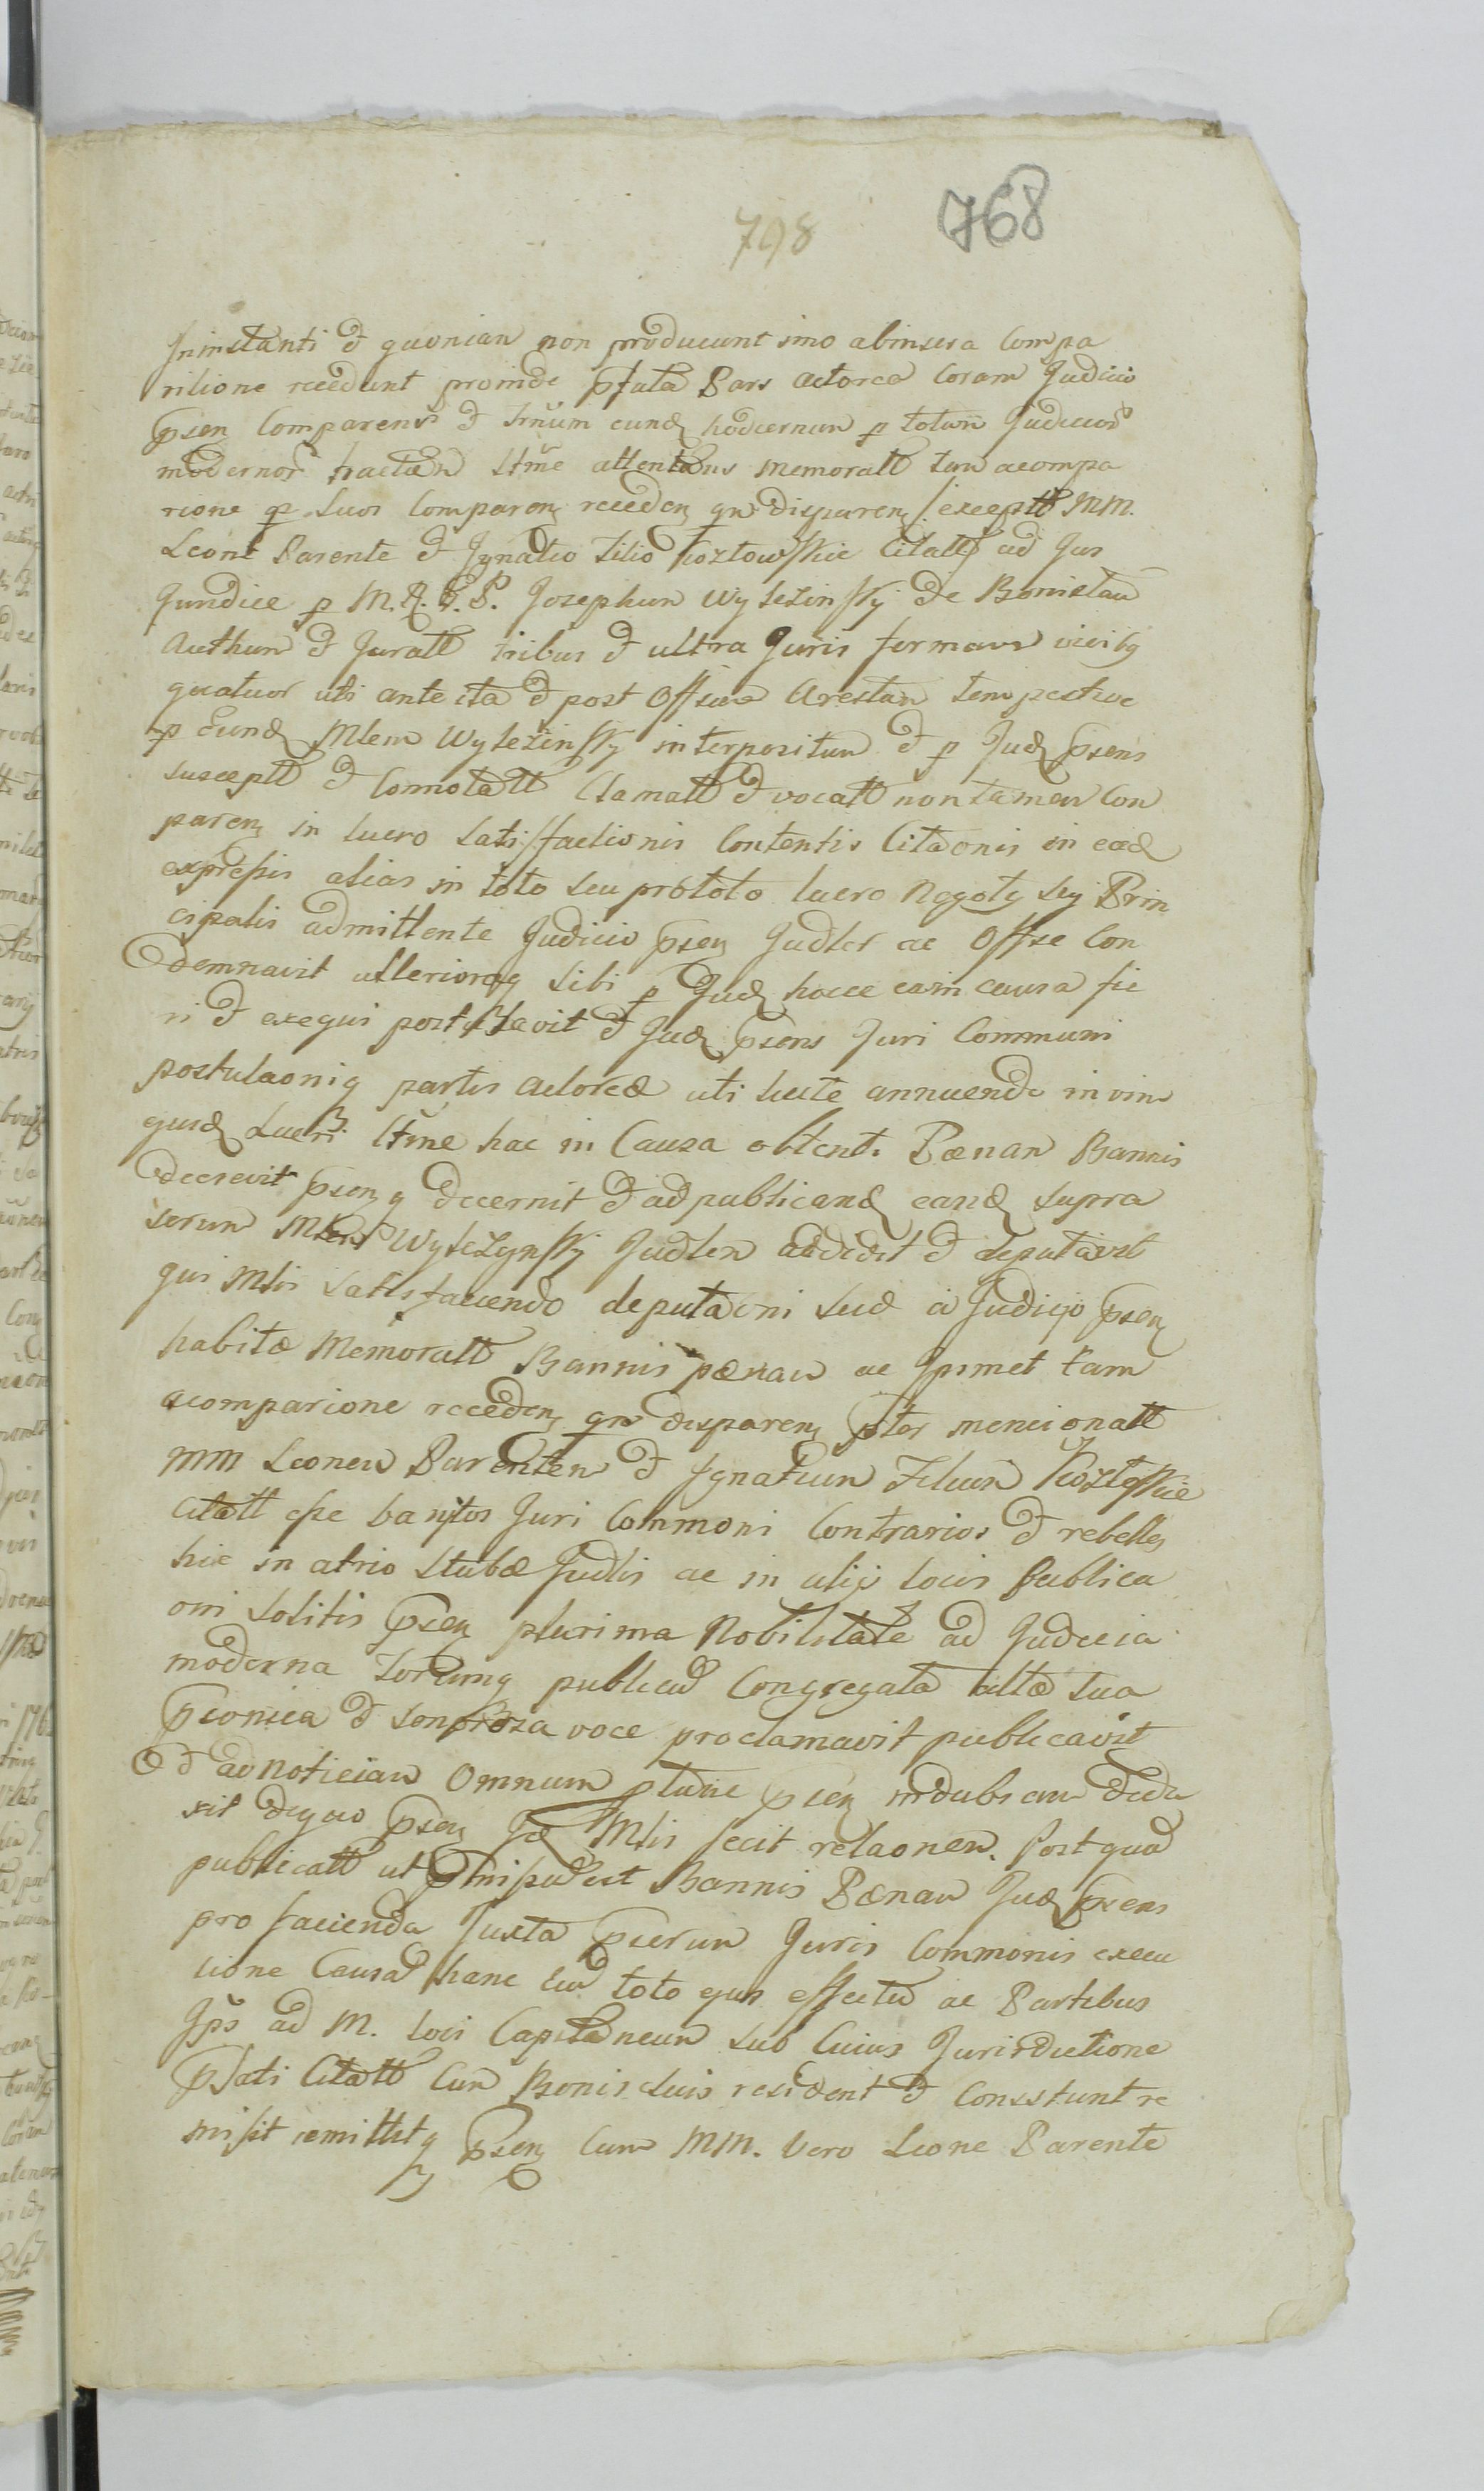 798 768
Ininstanti et quonian non producunt imo abinsera Compa
ritione recedunt proinde pfata Pars actorea Coram Judicio
psen Comparens et trnum eund hodiernum p totum Judicior
modernor tractum stme attentans memoratt tam acompa
rione p suos Comparen receden qm disparen /: exceptt MM.
Leone Parente et Ignatio Filio Kozłowskie Citatt ad Jus
Juridice p M. R. G. P. Josephum Wyleżinsky de Bonislau
Authum et Juratt tribus et ultra Juris formans vicibq
quatuor uti ante ita et post Offsum Arestum tempestive
p Eund Mlem Wyleżinsky interpositum et p Jud psens
susceptt et Connotatt Clamatt et vocatt non tamen Con
paren in lucro satisfactionis Contentis Citaonis in ead
expressis alias in toto seu prototo lucro Negoty sej Prin
cipalis admittente Judicio psen Judler ac Offse Con
demnavit ullerioraq sibi p Jud hocce eain causa fie
ri et exequi postulavit et Jud psens Juri Communi
postulaoniq partis actoreæ uti iuste annuendo in vim
ejusd Lucri stme hac in Causa obtent. Pœnam Bannis
decrevit psenq decernit et ad publicand eand supra
serum Mlem Wyleżynsky Judlem addidit et deputavit
qui Mlis satisfaciendo deputaoni suæ a Judicjo psen
habitæ Memoratt Bannis pœnam ac Ipsmet tam
acomparione receden qm disparen ptos mencionatt
MM Leonem Parentem et Ignatium Filium Kozłoskie
Citatt esse banitos Juri Commoni Contrarios et rebelles
hic in atrio stubæ Judlis ac in alijs locis publica
oni solitis psen plurima Nobilitate ad Judicia
moderna Forumq publicum Congregata alta sua
psonica et sonorosa voce proclamavit publicavit
Et ad noticiam Omnum ptunc psen indubiam dedu
xit dequo psen Jd Mlis fecit relaonem. Postquam
publicatt ut pmissum est Bannis Pœnam Jud psens
pro facienda Juxta pscrum Juris Commonis execu
tione Causam hanc Cum toto ejus effectu ac Partibus
Ips ad M. loci Capitaneum sub Cuius Jurisdictione
pfati Citatt Cum Bonis suis resident et Consistunt re
misit remittitq psen Cum MM. vero Leone Parente